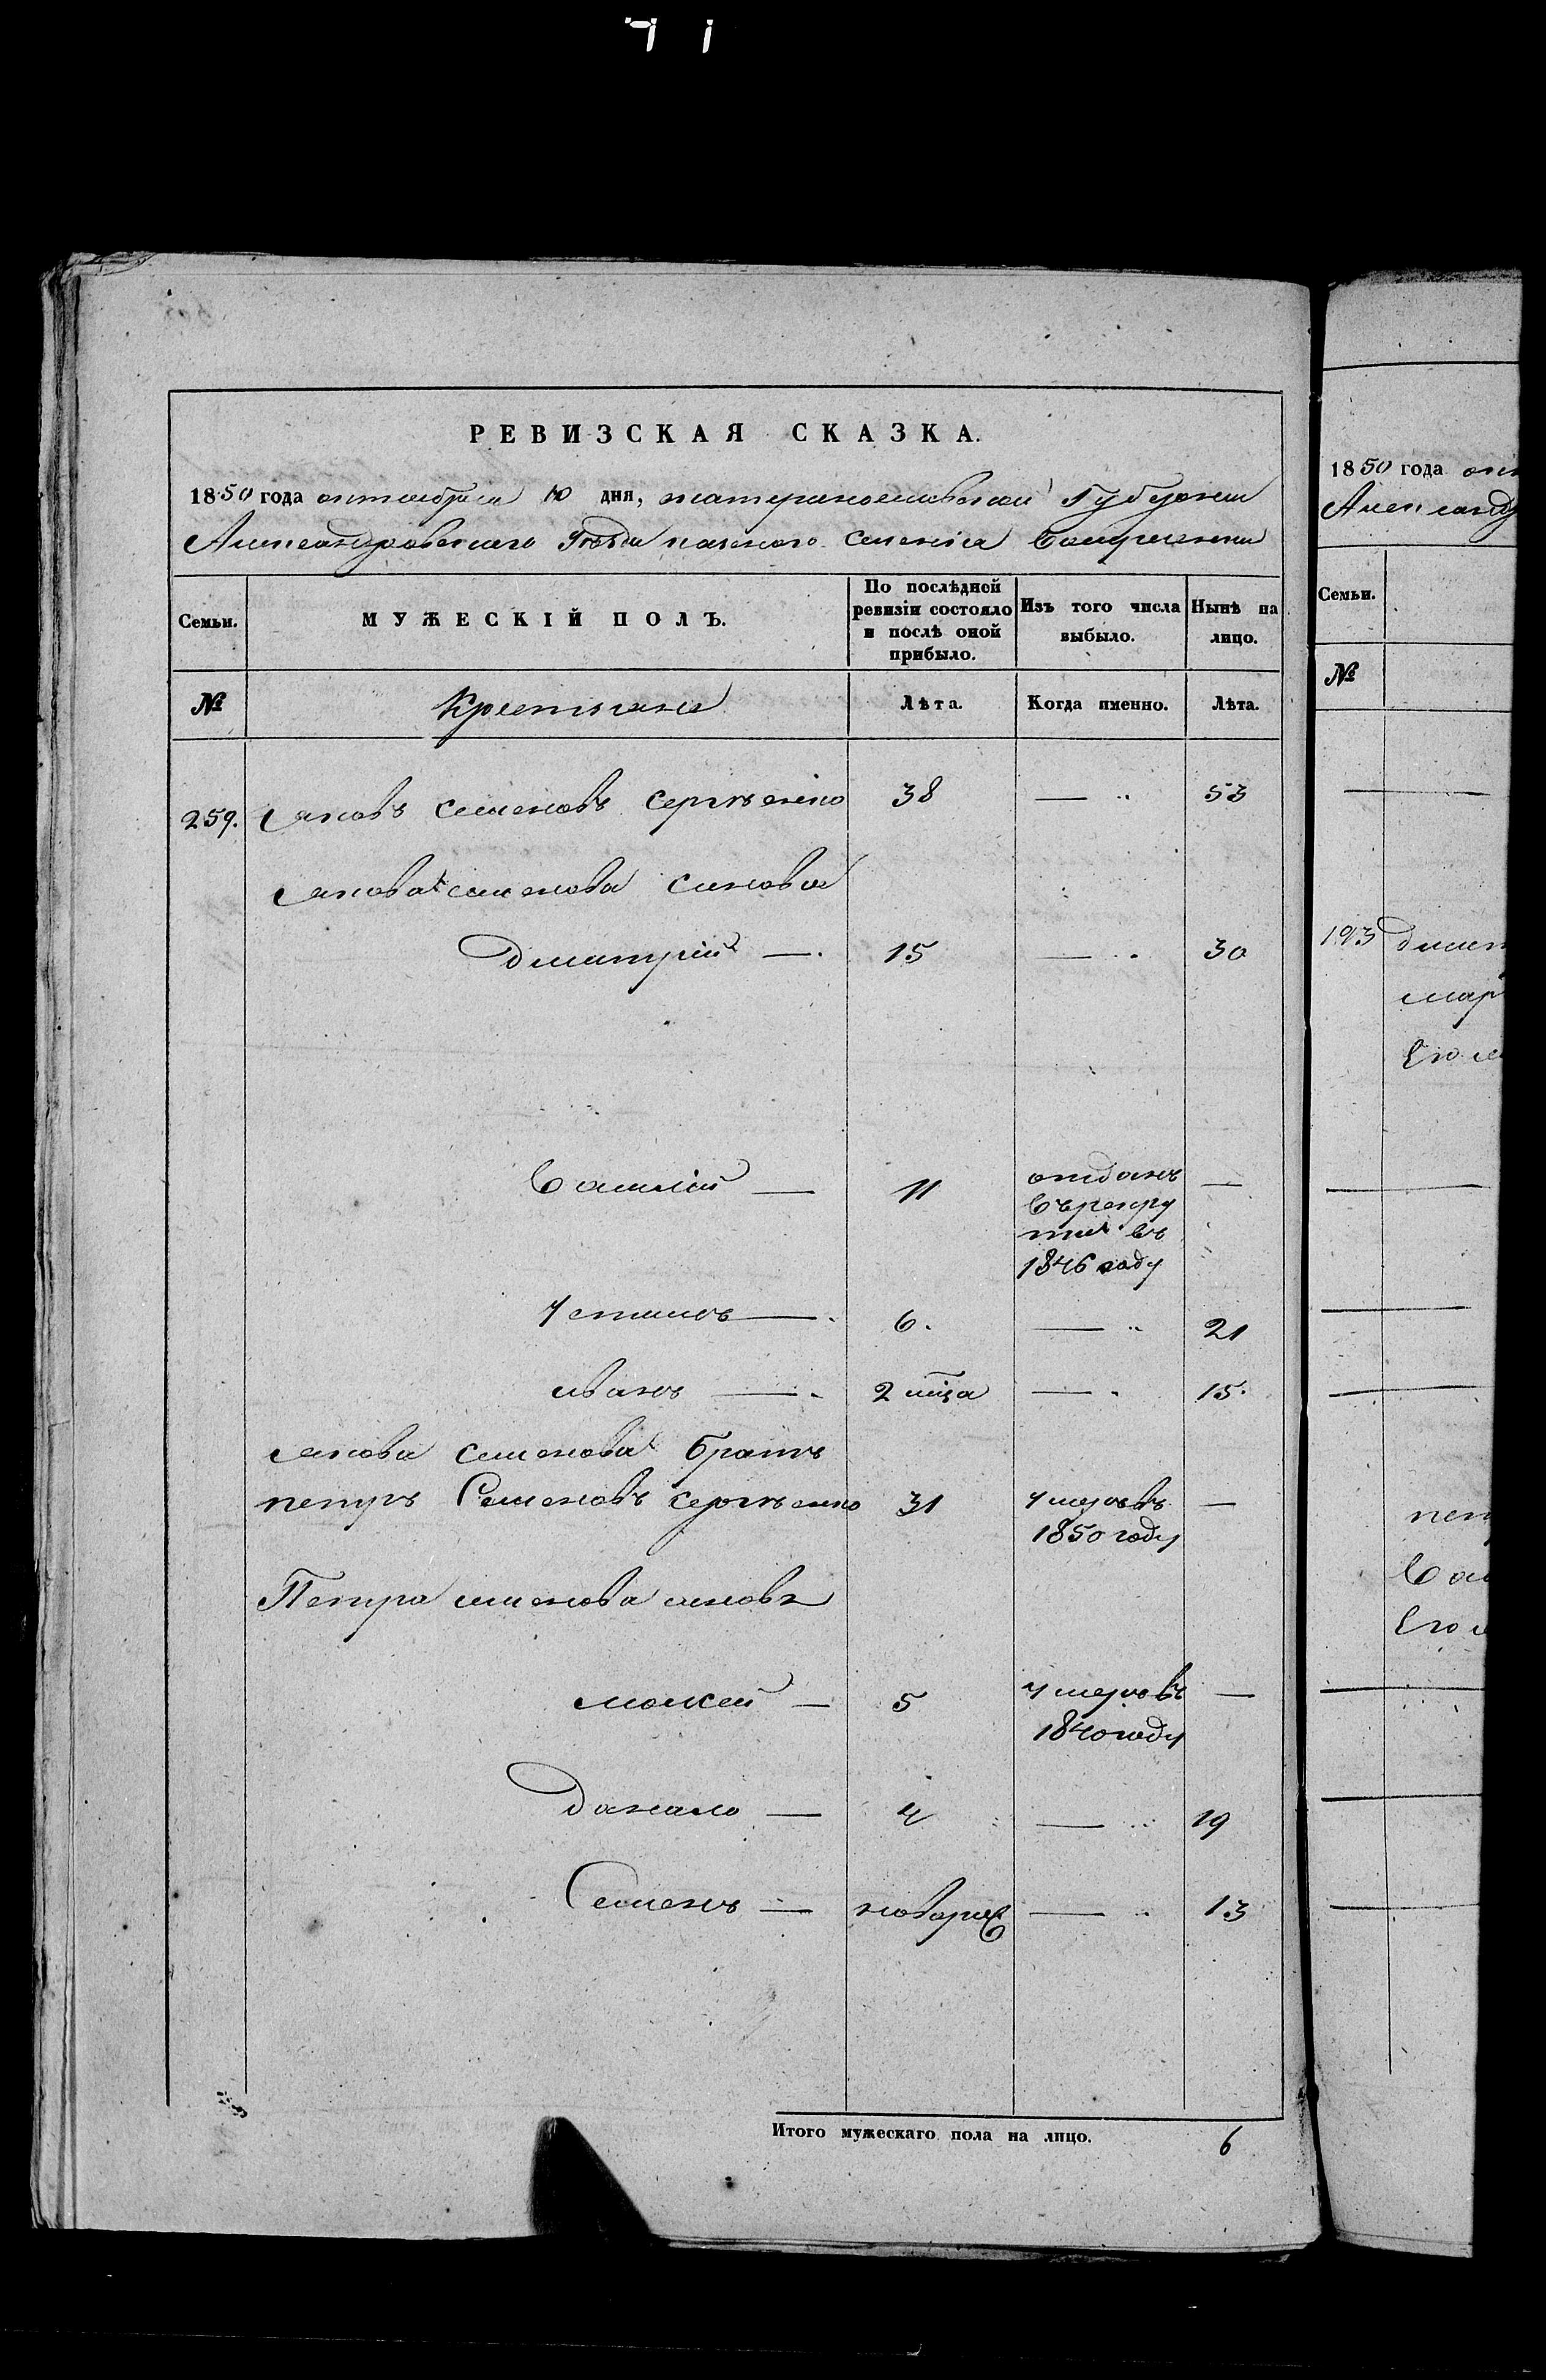 РЕВИЗСКАЯ СКАЗКА.
1850 года октября 10 дня, катеринославской Губернии
Александровского Уезда казенного селения
Семьи.
МУЖЕСКІЙ ПОЛЪ.
По послѣдней ревизіи состояло и послѣ оной прибыло.
Изъ того числа выбыло.
Нынѣ на лицо.
№
Крестьяне
Лѣта.
Когда именно.
Лѣта.
259. Яковъ Семеновъ Сергѣенко 38 — 53
Якова Семенова сыновья
Дмитрій — 15 — 30
Василій — 11 отданъ —
въ рекру
ты въ
1846 году
Устимъ — 6. — 21
иванъ — 2 мѣца — 15.
Якова Семенова братъ
петръ Семеновъ сергѣенко 31 умеръ въ —
1850 году
Петра семенова сыновья
моисей — 5 умеръ въ —
1840 году
Данило — 4 — 19
Семенъ — новорож — 13
Итого мужескаго пола на лицо. 6
1850 года
Семьи.
№
193